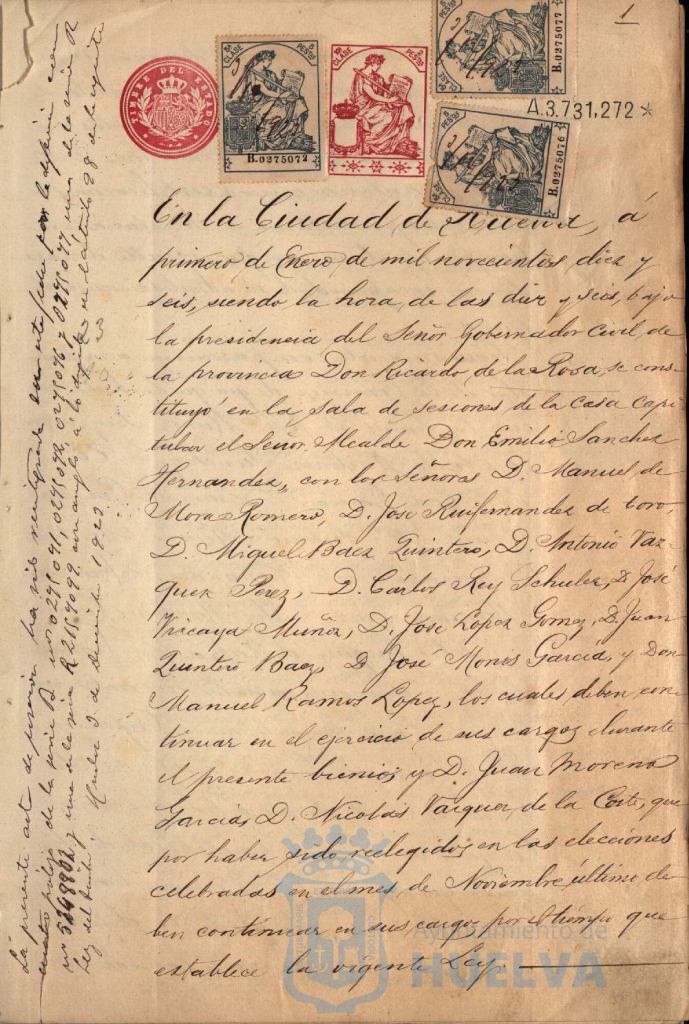 1
TIMBRE DEL ESTADO
5ª CLASE 5 PESTAS
B.0275072
CLASE PESTAS
B.0275077
CLASE
B.0275076
A.3.731,272 *
En la Ciudad de Huelva, á
primero de Enero de mil novecientos diez y
seis, siendo la hora de las diez y seis, bajo
la presidencia del Señor Gobernador Civil de
la provincia Don Ricardo de la Rosa, se cons-
tituyó en la sala de sesiones de la casa capi-
tular el Señor Alcalde Don Emilio Sanchez
Hernandez, con los Señores D. Manuel de
Mora Romero, D. José Ruifernandez de toro,
D. Miguel Báez Quintero, D. Antonio Vaz-
quez Perez, D. Cárlos Rey Schuler, D. José
Vizcaya Muñoz, D. José López Gomez, D. Juan
Quintero Baez, D José Monís García, y Don
Manuel Ramos Lopez, los cuales deben con-
tinuar en el ejercicio de sus cargos durante
el presente bienio; y D. Juan Moreno
Garcia, D. Nicolás Vazquez de la Corte, que
por haber sido reelegidos en las elecciones
celebradas en el mes de Noviembre último de-
ben continuar en sus cargos por el tiempo que
establece la vigente Ley.
La presente acta de posesión ha sido reintegrada en este fecha por
cuatro pólizas de la serie B. nos 0275071, 0275072, 0275076 y 0275077, una de la serie A
nº 5248802 y una de la serie R con arreglo á lo en el artículo 28 de la vigente
Ley del Timbre. Huelva 3 de diciembre 1923
Ayuntamiento de
HUELVA